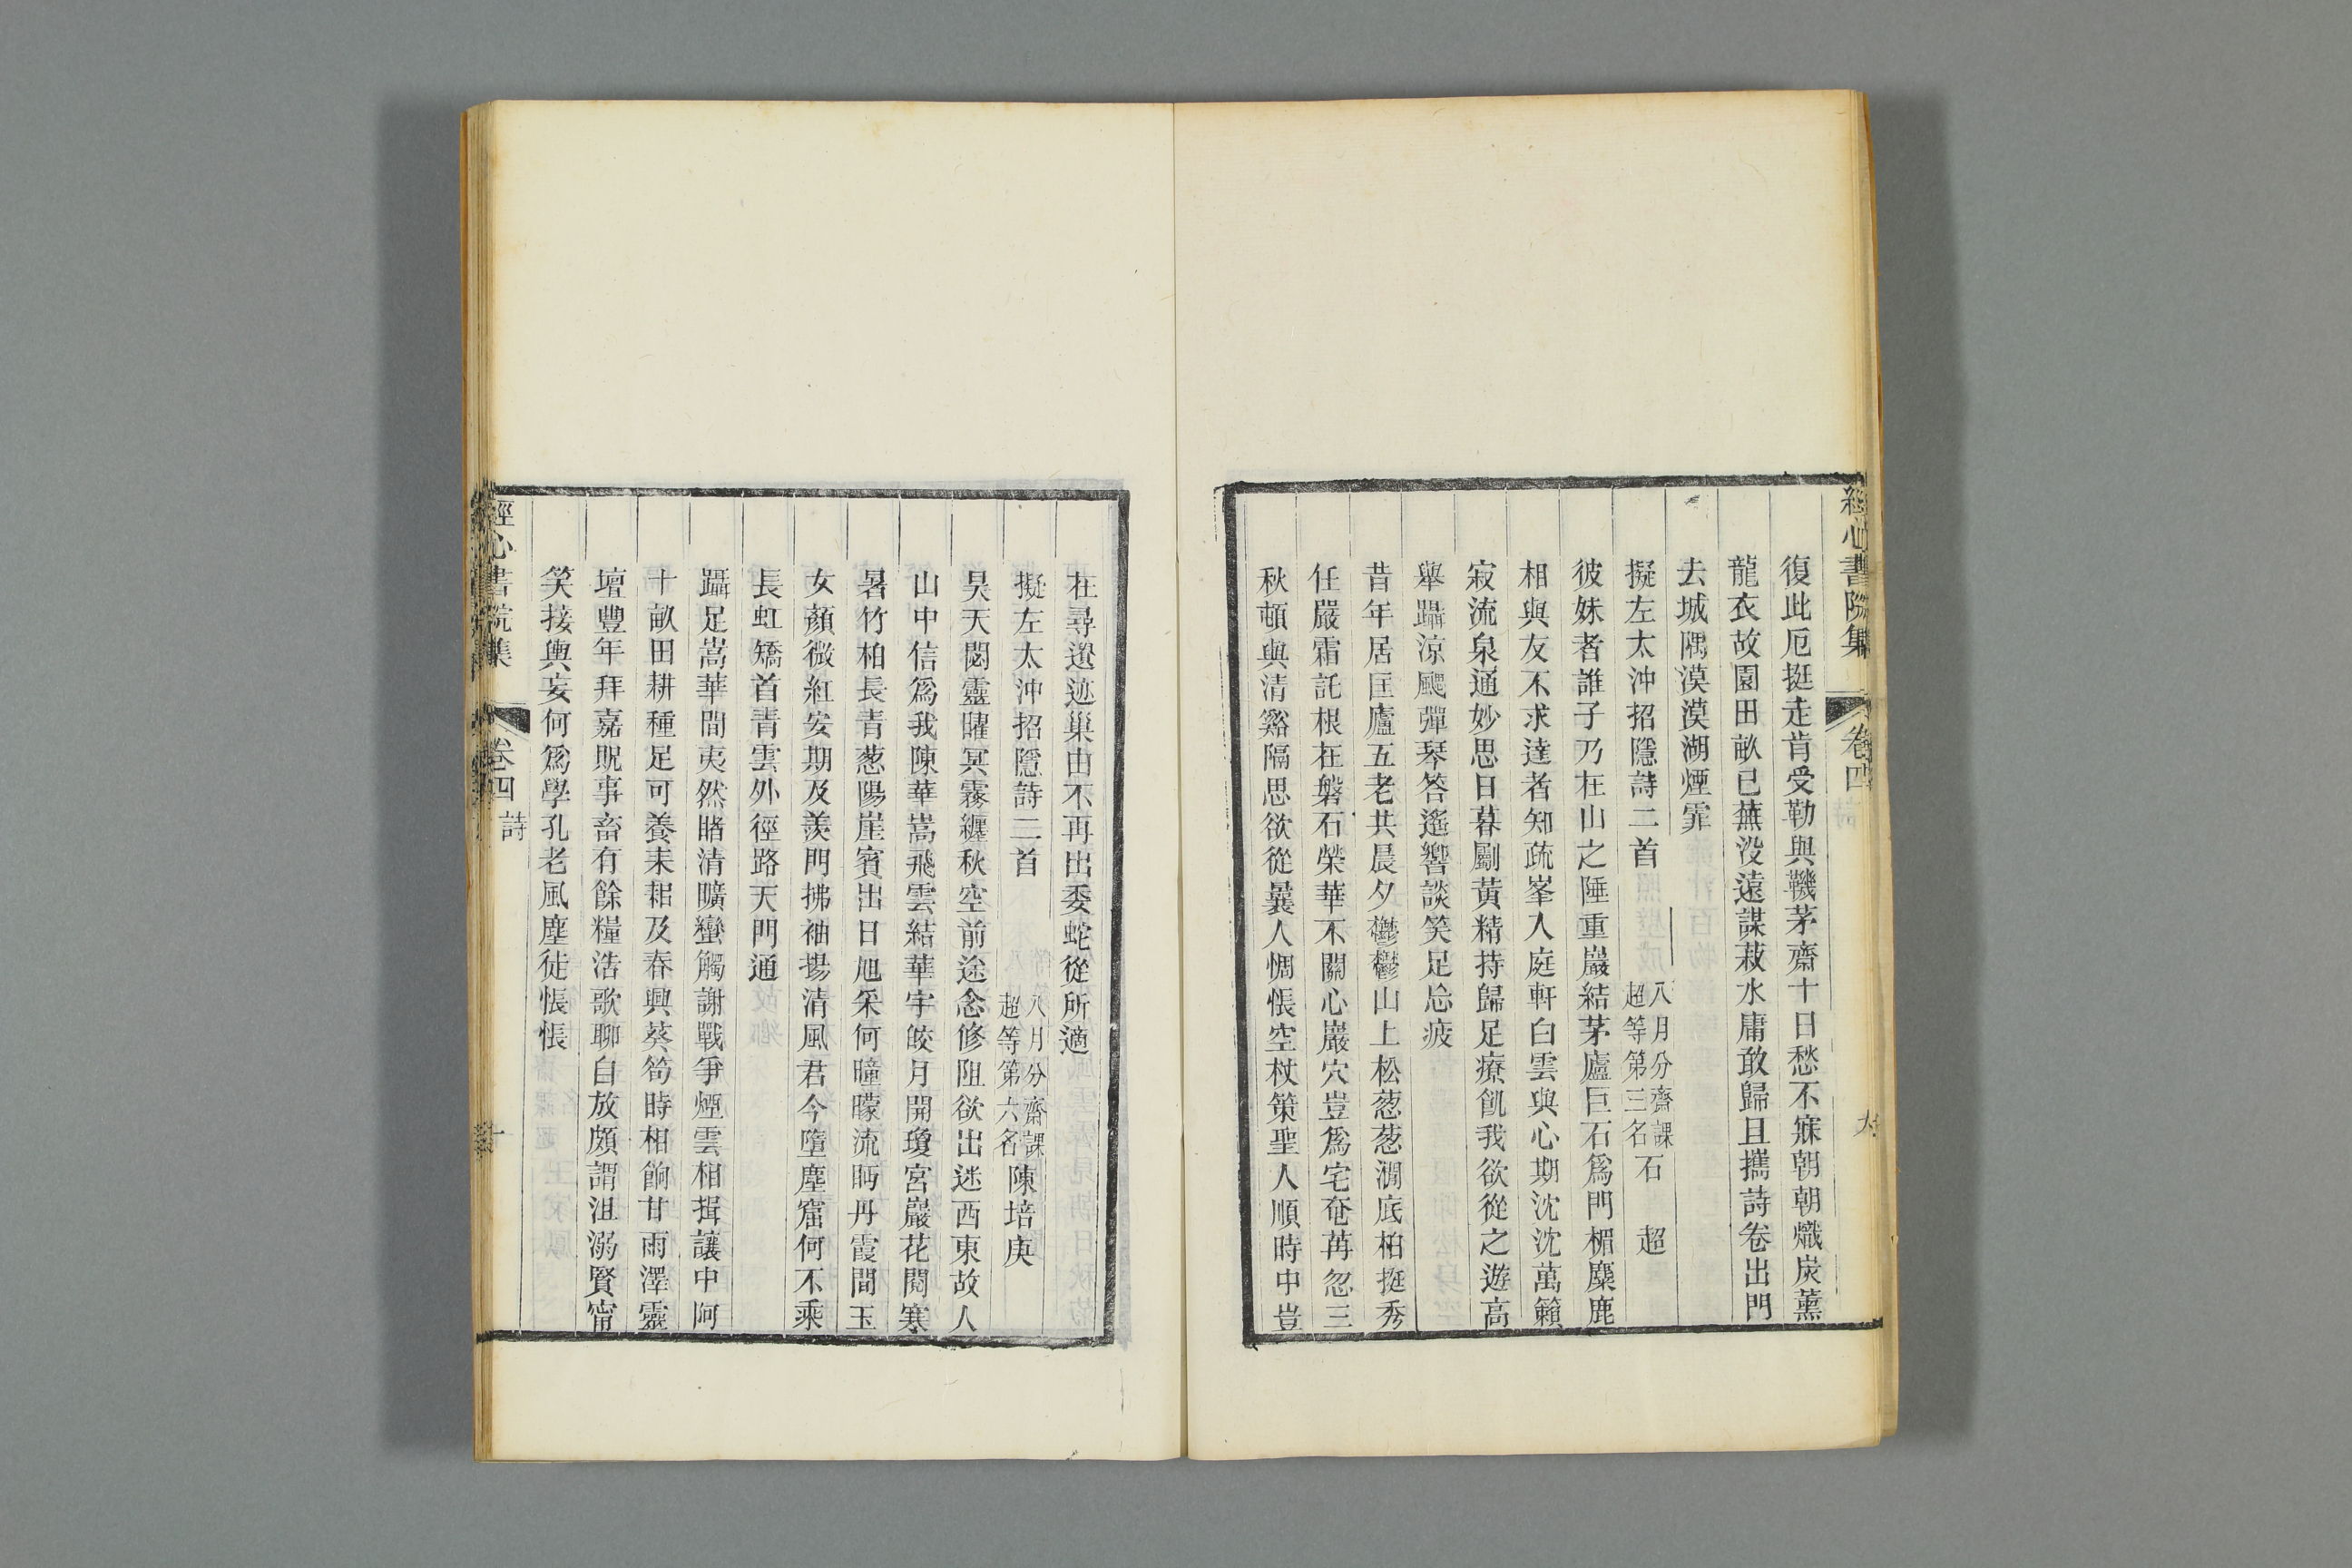 經心書院集 卷四 詩
復此厄挺走肯受勒與鞿茅齋十日愁不寐朝朝熾炭薰
龍衣故園田畝已蕪没遠謀菽水庸敢歸且攜詩卷出門
去城隅漠漠湖煙霏
擬左太沖招隱詩二首 八月分齋課超等第三名 石 超
彼姝者誰子乃在山之陲重巖結茅廬巨石爲門楣麋鹿
相與友不求達者知疏峯入庭軒白雲與心期沈沈萬籟
寂流泉通妙思日暮劚黃精持歸足療飢我欲從之遊高
舉躡涼颸彈琴答遙響談笑足忘疲
昔年居匡廬五老共晨夕鬱鬱山上松葱葱澗底柏挺秀
任嚴霜託根在磐石榮華不關心巖穴豈爲宅奄苒忽三
秋頓與清谿隔思欲從曩人惆悵空杖策聖人順時中豈
在尋遯迹巢由不再出委蛇從所適
擬左太沖招隱詩二首 八月分齋課超等第六名 陳培庚
昊天閟靈曜冥霧纏秋空前途念修阻欲出迷西東故人
山中信爲我陳華嵩飛雲結華宇皎月開瓊宮巖花閱寒
暑竹柏長青葱陽崖賓出日旭采何曈曚流眄丹霞間玉
女顏微紅安期及羨門拂袖揚清風君今墮塵窟何不乘
長虹矯首青雲外徑路天門通
躡足嵩華間夷然睹清曠蠻觸謝戰爭煙雲相揖讓中阿
十畝田耕種足可養耒耜及春興葵筍時相餉甘雨澤靈
壇豐年拜嘉貺事畜有餘糧浩歌聊自放頗謂沮溺賢甯
笑接輿妄何爲學孔老風塵徒悵悵
經心書院集 卷四 詩 十